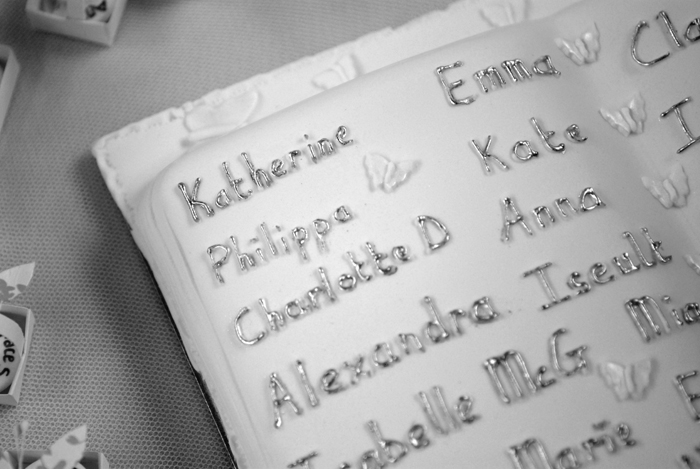 Emma
Katherine Kate
Philippa Anna
Charlotte D Iseult
Alexandra McG
Isabelle Marie